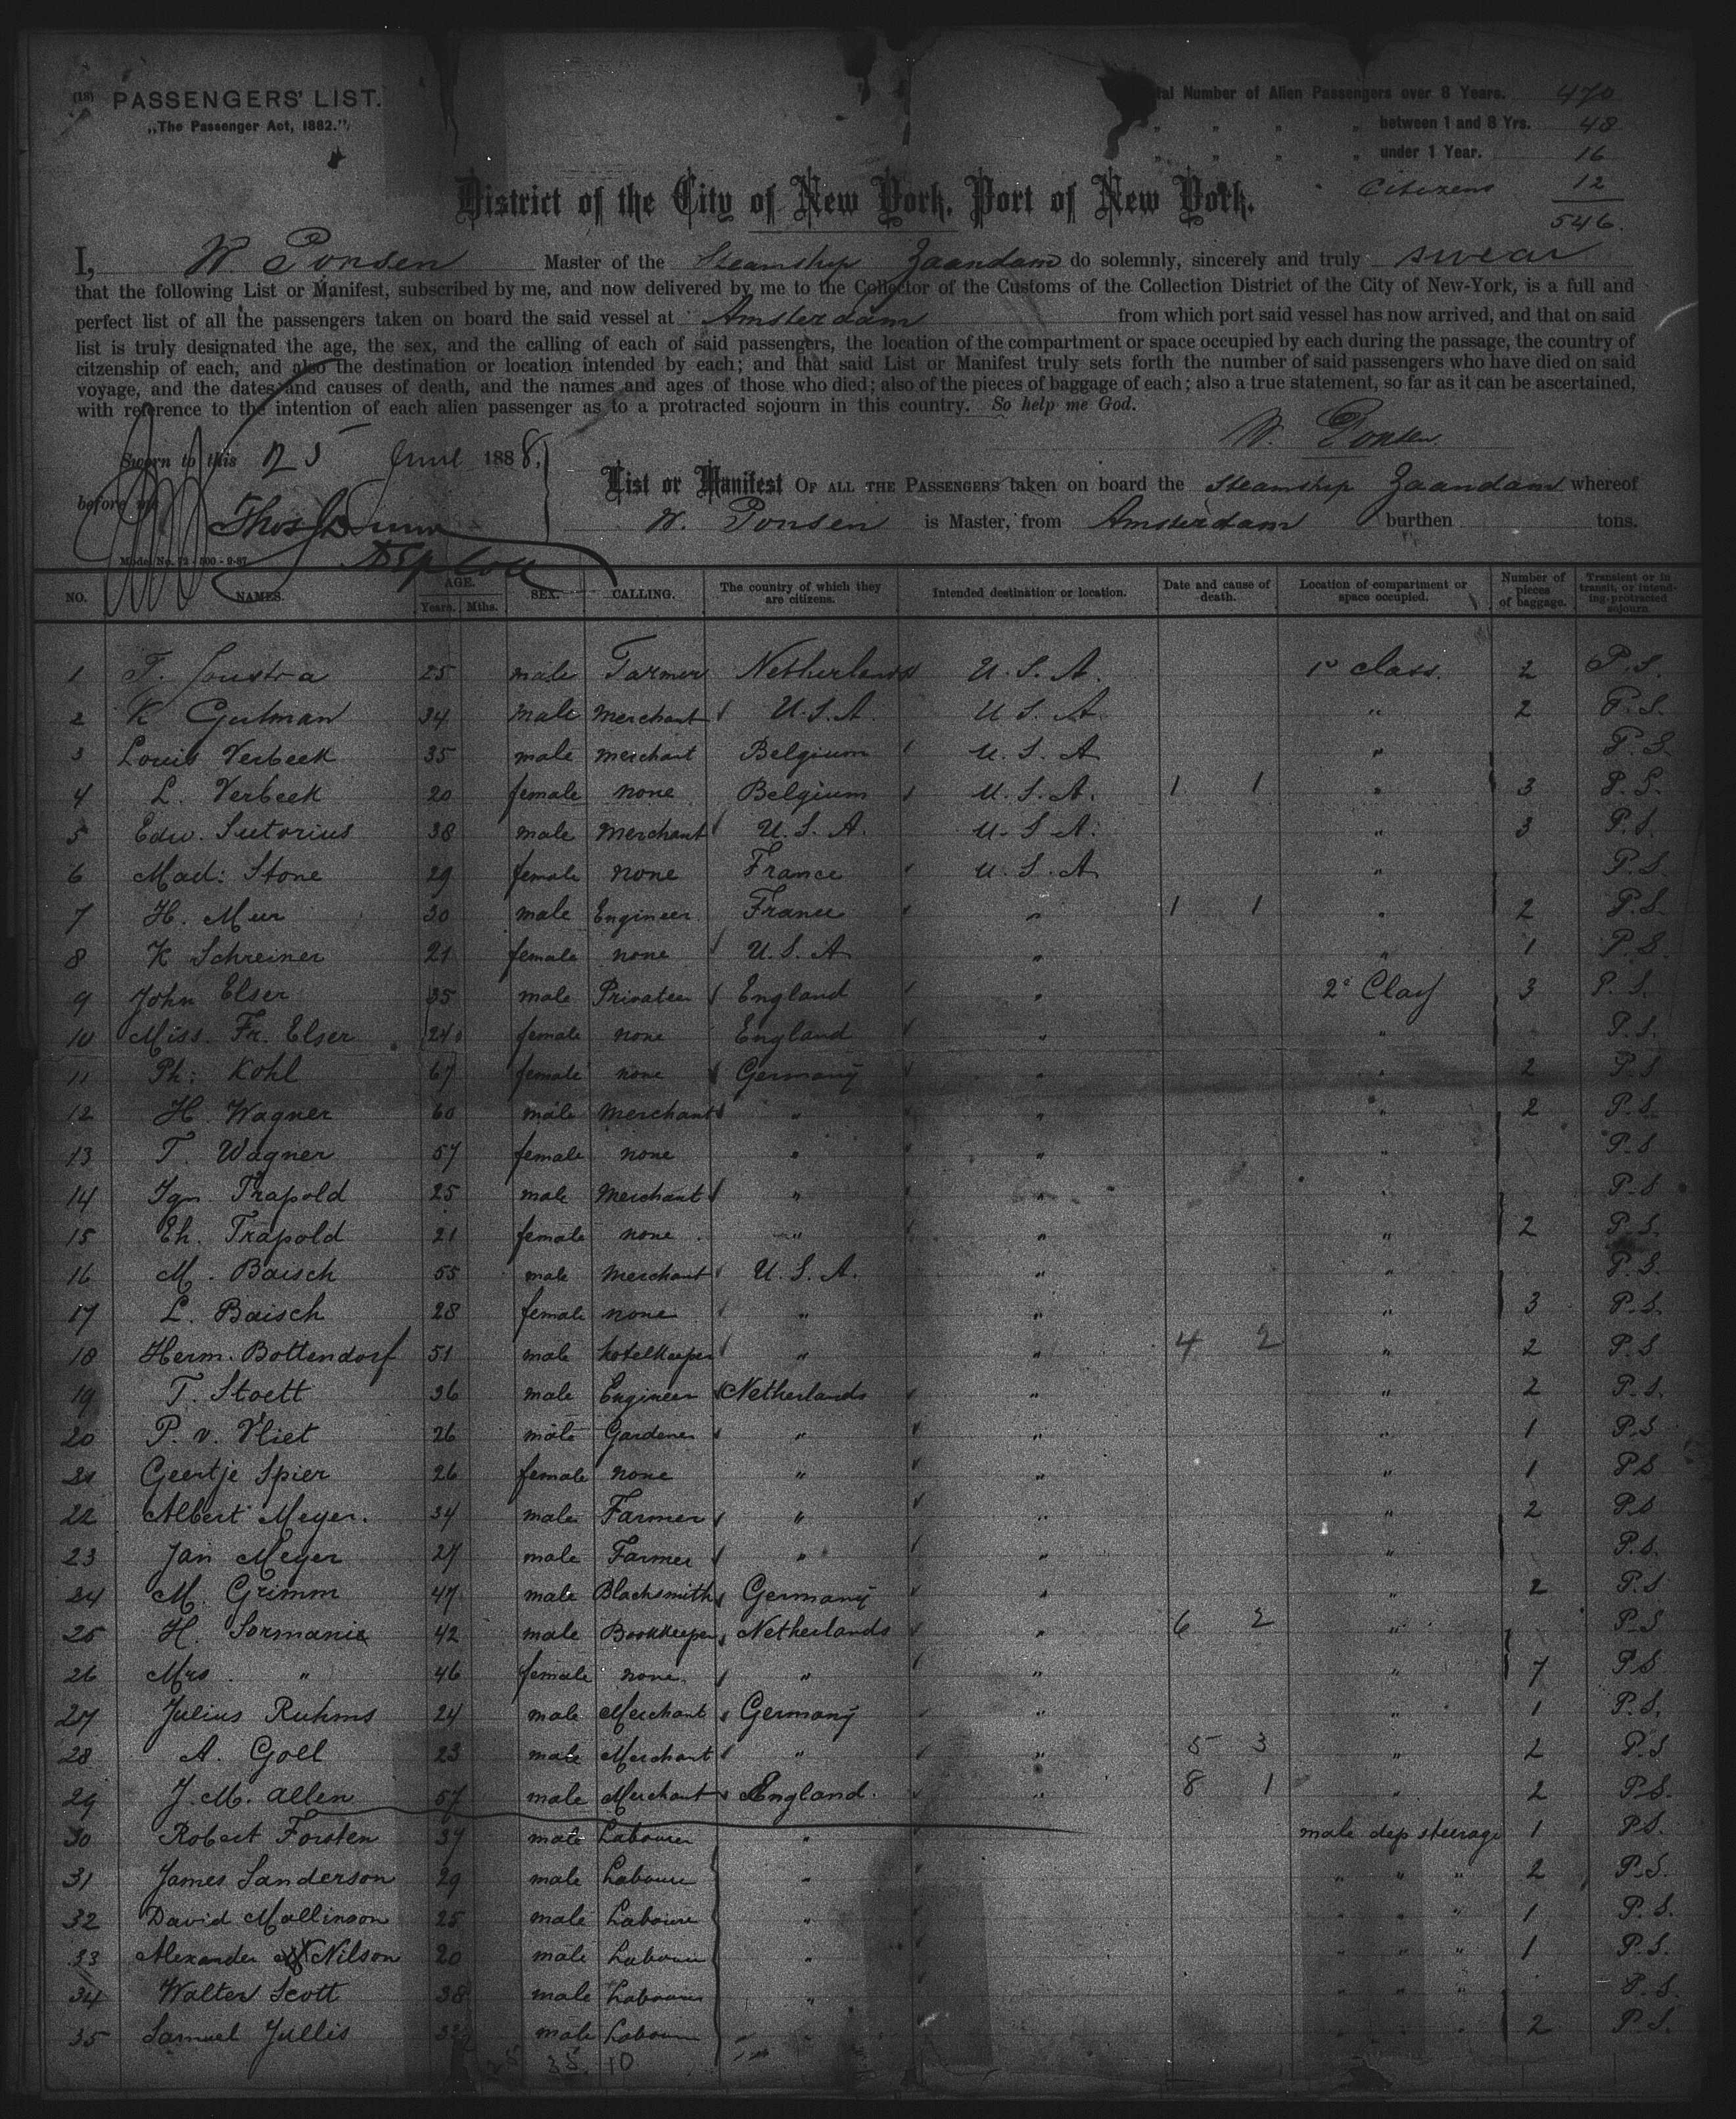 (18) PASSENGERS' LIST.
„The Passenger Act, 1882."
Number of Alien Passengers over 8 Years. 470
" " " " between 1 and 8 Yrs. 48
" " " " under 1 Year. 16
Citizens 12
546.
District of the City of New York, Port of New York.
I, W. Ponsen Master of the Steamship Zaandam do solemnly, sincerely and truly swear
that the following List or Manifest, subscribed by me, and now delivered by me to the Collector of the Customs of the Collection District of the City of New-York, is a full and
perfect list of all the passengers taken on board the said vessel at Amsterdam from which port said vessel has now arrived, and that on said
list is truly designated the age, the sex, and the calling of each of said passengers, the location of the compartment or space occupied by each during the passage, the country of
citzenship of each, and also the destination or location intended by each; and that said List or Manifest truly sets forth the number of said passengers who have died on said
voyage, and the dates and causes of death, and the names and ages of those who died; also of the pieces of baggage of each; also a true statement, so far as it can be ascertained,
with reference to the intention of each alien passenger as to a protracted sojourn in this country. So help me God.
W. Ponsen
Sworn to this 25 1888,
before me
List or Manifest OF ALL THE PASSENGERS taken on board the Steamship Zaandam whereof
W. Ponsen is Master, from Amsterdam burthen tons.
Model No. 72 - 500 - 9-87
NO. NAMES. AGE. Years. Mths. SEX. CALLING. The country of which they are citizens. Intended destination or location. Date and cause of death. Location of compartment or space occupied. Number of pieces of baggage. Transient or in transit, or intending protracted sojourn
1 T. Joustra 25 male Farmer Netherlands U. S. A. 1e class. 2 P. S.
2 K Gutman 34 male Merchant U. S. A. U S. A. " 2 P. S.
3 Louis Verbeek 35 male Merchant Belgium U. S. A " P. S.
4 L. Verbeek 20 female none Belgium U. S. A. 1 1 " 3 P. S.
5 Edw. Sutorius 38 male Merchant U. S. A. U. S A. " 3 P. S.
6 Mad: Stone 29 female none France U. S. A " P. S.
7 H. Meur 30 male Engineer France " 1 1 " 2 P. S.
8 K Schreiner 21 female none U. S. A. " " 1 P. S.
9 John Elser 35 male Privateer England " 2e Class 3 P. S.
10 Miss. Fr. Elser 24 female none England " " P. S.
11 Ph: Kohl 67 female none Germany " " 2 P S
12 H. Wagner 60 male Merchant " " " 2 P. S.
13 T. Wagner 57 female none " " " P. S
14 Ign. Trapold 25 male Merchant " " " P. S
15 Eh. Trapold 21 female none " " " 2 P. S.
16 M. Baisch 55 male Merchant U. S. A. " " P. S.
17 L. Baisch 28 female none " " " 3 P. S.
18 Herm. Bottendorf 51 male hotelkeeper " " 4 2 " 2 P. S
19 T. Stoett 36 male Engineer Netherlands " " 2 P. S.
20 P. v. Vliet 26 male Gardener " " " 1 P. S
21 Geertje Spier 26 female none " " " 1 P S
22 Albert Meyer. 34 male Farmer " " " 2 P. S
23 Jan Meyer 27 male Farmer " " " P. S.
24 M. Grimm 47 male Blacksmith Germany " " 2 P. S
25 H. Sormanie 42 male Bookkeeper Netherlands " 6 2 " P. S
26 Mrs " 46 female none " " " 7 P. S
27 Julius Ruhms 24 male Merchant Germany " " 1 P. S.
28 A. Goll 23 male Merchant " " 5 3 " 2 P. S
29 J. M. Allen 57 male Merchant England. " 8 1 " 2 P. S.
30 Robert Forsten 37 male Labourer " male dep steerage 1 P. S.
31 James Sanderson 29 male Labourer " " " " 2 P. S.
32 David Mallinson 25 male Labourer " " " " 1 P. S.
33 Alexander Nilson 20 male Labourer " " " " 1 P. S.
34 Walter Scott 38 male Labourer " " " " P. S.
35 Samuel Jullis male Labourer " " " " 2 P. S.
35 10